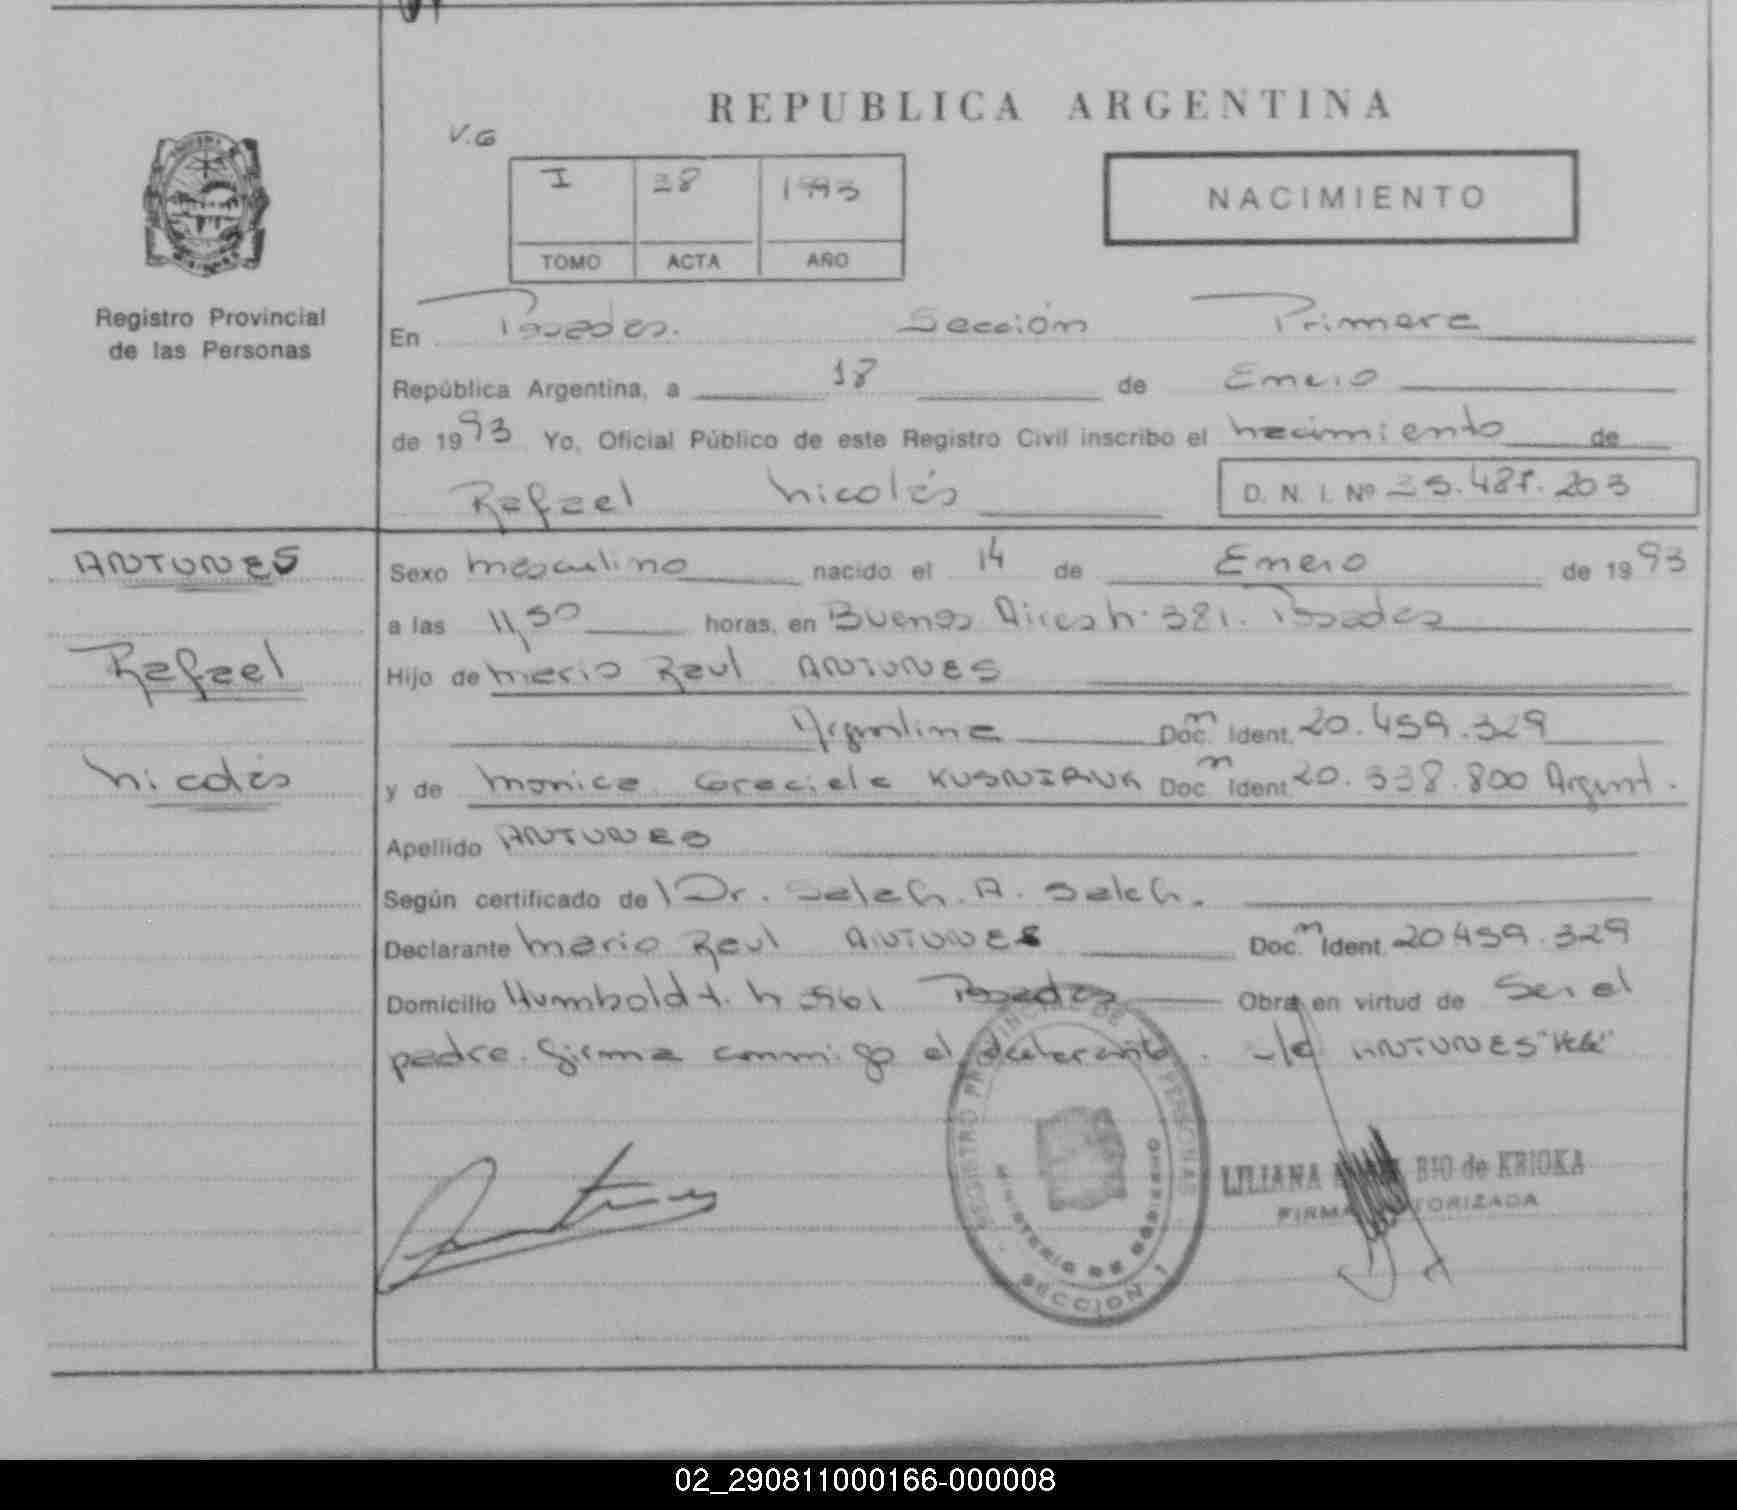 REPUBLICA ARGENTINA
V.G
I 38 1993
TOMO ACTA AÑO
NACIMIENTO
Registro Provincial
de las Personas
En Posadas. Sección Primera
República Argentina, a 18 de Enero
de 1993 Yo, Oficial Público de este Registro Civil inscribo el nacimiento de
Rafael Nicolás
D. N. I. Nº
ANTUNES
Rafael
Nicolás
Sexo masculino nacido el 14 de Enero de 1993
a las 11,50 horas, en Buenos Aires N. 381. Posadas
Hijo de Mario Raul ANTUNES
Argentina Doc. Ident. 20.459.329
y de Monica Graciela Doc. Ident. 20.338.800 Argent.
Apellido ANTUNES
Según certificado de l Dr. Saleh. A. Saleh.
Declarante Mario Raul ANTUNES Doc. Ident. 20459.329
Domicilio Humboldt. N Posadas Obra en virtud de Ser el
padre. firma conmigo el declarante. ANTUNES "Vale"
REGISTRO PROVINCIAL DE LAS PERSONAS
MINISTERIO DE GOBIERNO
SECCION 1
LILIANA BIO de KRIOKA
FIRMA AUTORIZADA
02_290811000166-000008